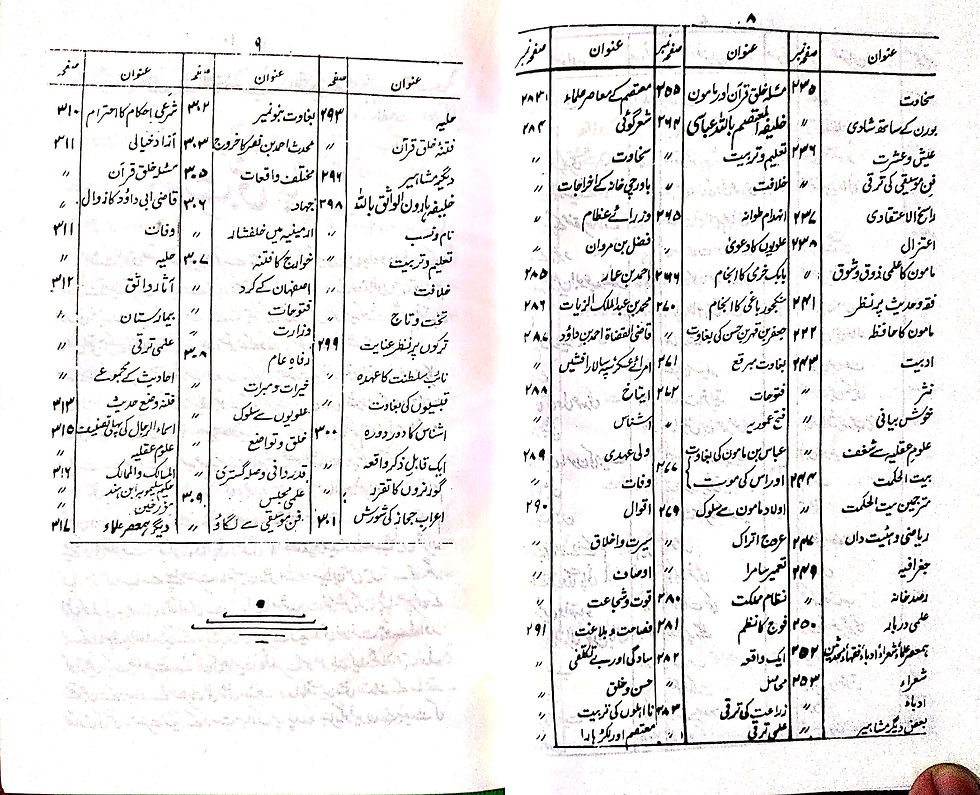 ۸
عنوان صفحہ نمبر عنوان صفحہ نمبر عنوان صفحہ نمبر
سخاوت ۲۳۵
بورن کے ساتھ شادی 〃
عیش و عشرت ۲۳۶
فن موسیقی کی ترقی 〃
راسخ الاعتقادی ۲۳۷
اعتزال ۲۳۸
مامون کا علمی ذوق و شوق 〃
فقہ و حدیث پر نظر ۲۴۱
مامون کا حافظہ ۲۴۲
ادبیت ۲۴۳
نثر 〃
خوش بیانی 〃
علوم عقلیہ سے شغف 〃
بیت الحکمت ۲۴۴
مترجمین بیت الحکمت 〃
ریاضی و ہئیت داں ۲۴۷
جغرافیہ ۲۴۹
رصد خانہ 〃
علمی دربار ۲۵۰
ہمعصر علماء شعراء ادباء فقہاء محدثین ۲۵۲
شعراء ۲۵۳
ادباء
بعض دیگر مشاہیر 〃
مسئلہ خلق قرآن اور مامون ۲۵۵
خلیفہ المعتصم باللہ عباسی ۲۶۴
تعلیم و تربیت 〃
خلافت 〃
انہدام طوانہ ۲۶۵
علویوں کا دعویٰ 〃
بابک خرمی کا انجام ۲۶۶
سنجور باغی کا انجام ۲۷۰
جعفر بن فہر بن حسن کی بغاوت 〃
بغاوت مبرقع ۲۷۱
فتوحات ۲۷۲
فتح عموریہ 〃
عباس بن مامون کی بغاوت
اور اس کی موت ۲۷۷
اولاد مامون سے سلوک ۲۷۹
عروج اتراک 〃
تعمیر سامرا 〃
نظام مملکت ۲۸۰
فوج کا نظم ۲۸۱
ایک واقعہ ۲۸۲
زراعت کی ترقی ۲۸۳
علمی ترقی 〃
معتصم کے معاصر علماء ۲۸۳
شعر گوئی ۲۸۴
سخاوت 〃
باورچی خانہ کے اخراجات 〃
وزرائے عظام 〃
فضل بن مروان 〃
احمد بن عمار ۲۸۵
محمد بن عبدالملک الزیات ۲۸۶
قاضی القضاۃ احمد بن داؤد ۲۸۷
امرائے عسکر سپہ سالار افشیں 〃
ایتاخ ۲۸۸
اشناس 〃
ولی عہدی ۲۸۹
وفات 〃
اقوال ۲۹۰
سیرت و اخلاق 〃
اوصاف 〃
قوت و شجاعت 〃
فصاحت و بلاغت ۲۹۱
سادگی اور بے تکلفی 〃
حسن و خلق 〃
نااہلوں کی تربیت 〃
معتصم اور لکڑہارا 〃
۹
عنوان صفحہ عنوان صفحہ عنوان صفحہ
حلیہ ۲۹۳
فتنہ خلق قرآن 〃
دیگر مشاہیر ۲۹۶
خلیفہ ہارون الواثق باللہ ۲۹۸
نام و نسب 〃
تعلیم و تربیت 〃
خلافت 〃
تخت و تاج 〃
ترکوں پر نظر عنایت ۲۹۹
نائب سلطنت کا عہدہ 〃
قیسیوں کی بغاوت 〃
اشناس کا دور دورہ ۳۰۰
ایک قابل ذکر واقعہ 〃
گورنروں کا تقرر 〃
اعراب حجانہ کی شورش ۳۰۱
بغاوت بنو نمیر ۳۰۲
محدث احمد بن نصر کا خروج ۳۰۳
مختلف واقعات ۳۰۵
جہاد ۳۰۶
ارمینیہ میں خلفشار 〃
خوارج کا فتنہ ۳۰۷
اصفہان کے کرد 〃
فتوحات 〃
وزارت 〃
رفاہ عام ۳۰۸
خیرات و مبرات 〃
علویوں سے سلوک 〃
خلق و تواضع 〃
قدر دانی و صلہ گستری 〃
علمی مجلس ۳۰۹
فن موسیقی سے لگاؤ 〃
شرعی احکام کا احترام ۳۱۰
آزاد خیالی ۳۱۱
مسئلہ خلق قرآن 〃
قاضی ابی داؤد کا زوال 〃
وفات ۳۱۱
حلیہ 〃
آثار واثق ۳۱۲
بیمارستان 〃
علمی ترقی 〃
احادیث کے مجموعے 〃
فتنہ وضع حدیث ۳۱۳
اسماء الرجال کی پہلی تصنیف ۳۱۵
علوم عقلیہ 〃
المسالک والممالک ۳۱۶
مورخین 〃
دیگر ہمعصر علماء ۳۱۷